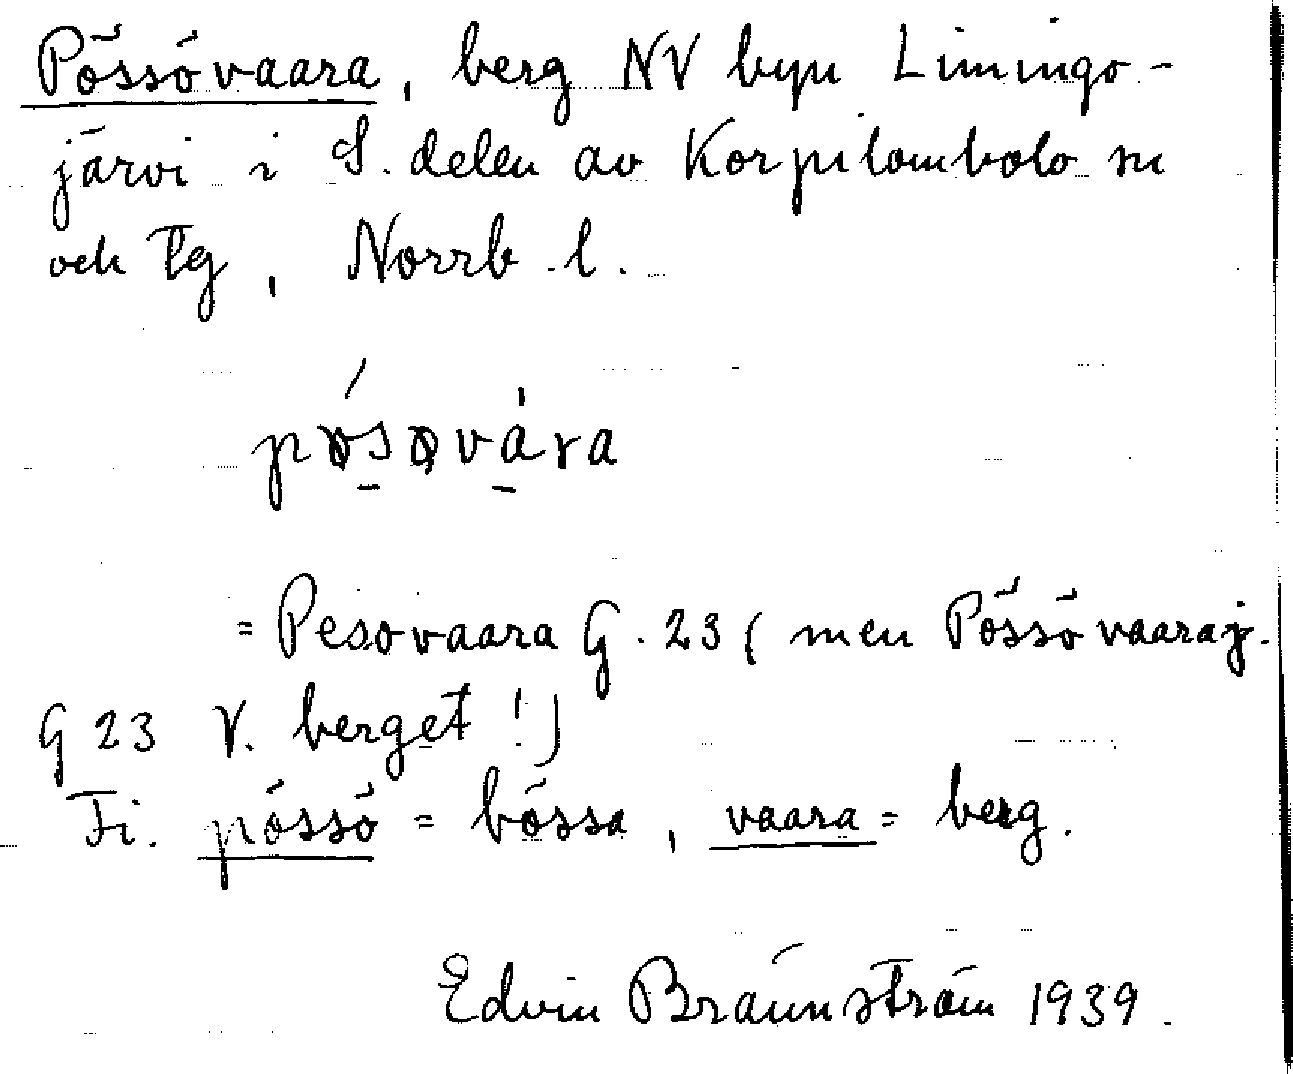 Pössövaara, berg NV byn Limingo-
järvi i S. delen av Korpilombolo sn
och Tg, Norrb. l.
pøsøvára
= Pesovaara G. 23 (men Pössövaaraj.
G 23 V. berget!)
Fi. pössö = bössa, vaara = berg.
Edvin Brännström 1939.